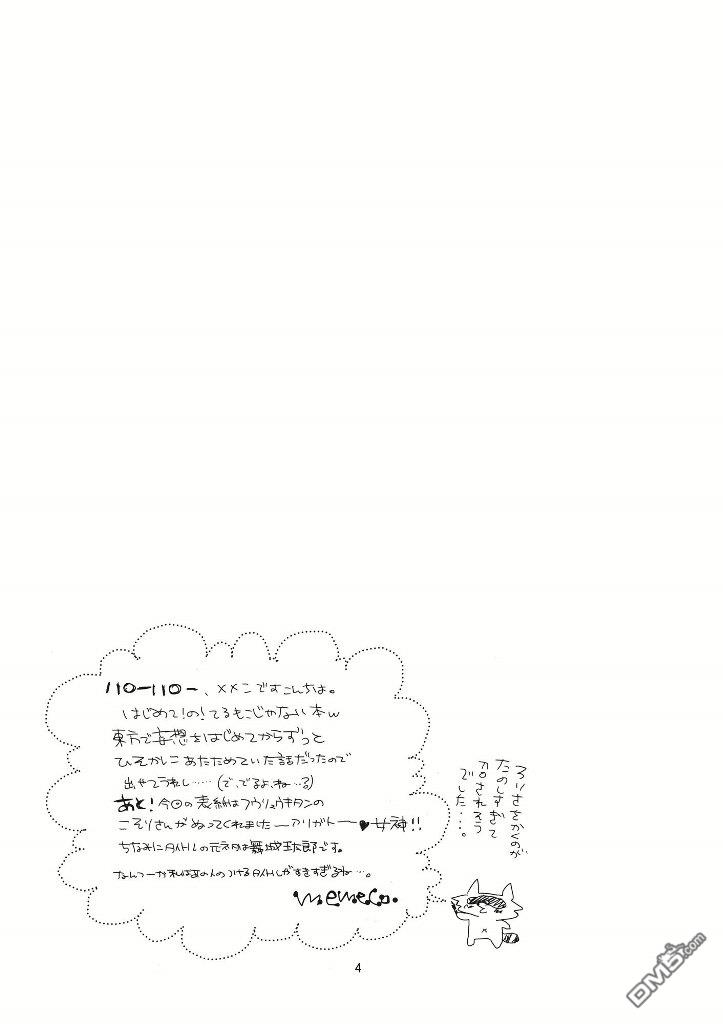 ハローハロー、メメコですこんちは。
はじめて!の!てるもこじゃない本w
東方で妄想をはじめてからずっと
ひそかにあたためていた話だったので
出せてうれし……(で、でるよ、ね…る)
あと!今回の表紙はフウリュウキタンの
こそりさんがぬってくれましたーアリガトー♥女神!!
ちなみにタイトルの元ネタは舞城王太郎です。
なんつーか私はあの人のつけるタイトルがすきすぎるね…。
memeco.
ろりさをかくのが
たのしすぎて
されそう
でした…。
4
DM5.com